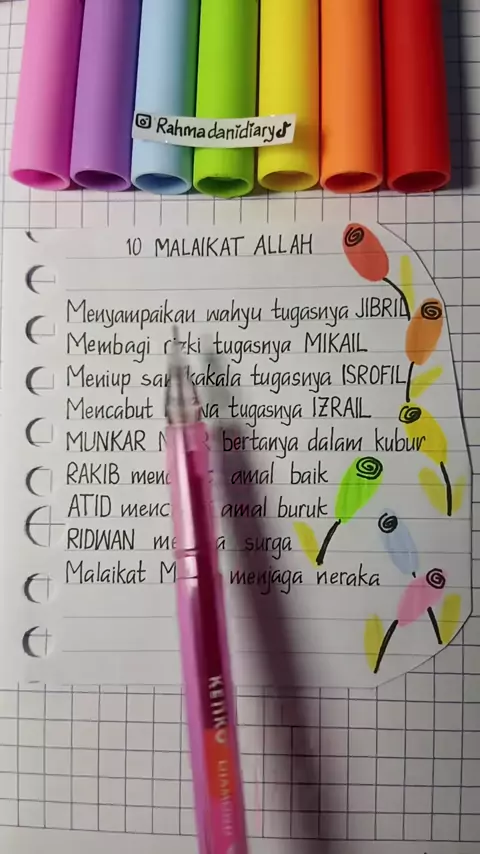 Rahmadanidiary
10 MALAIKAT ALLAH
Menyampaikan wahyu tugasnya JIBRIL
Membagi rizki tugasnya MIKAIL
Meniup sangkakala tugasnya ISROFIL
Mencabut tugasnya IZRAIL
MUNKAR bertanya dalam kubur
RAKIB amal baik
ATID amal buruk
RIDWAN surga
Malaikat menjaga neraka
KENKO DIAMOND